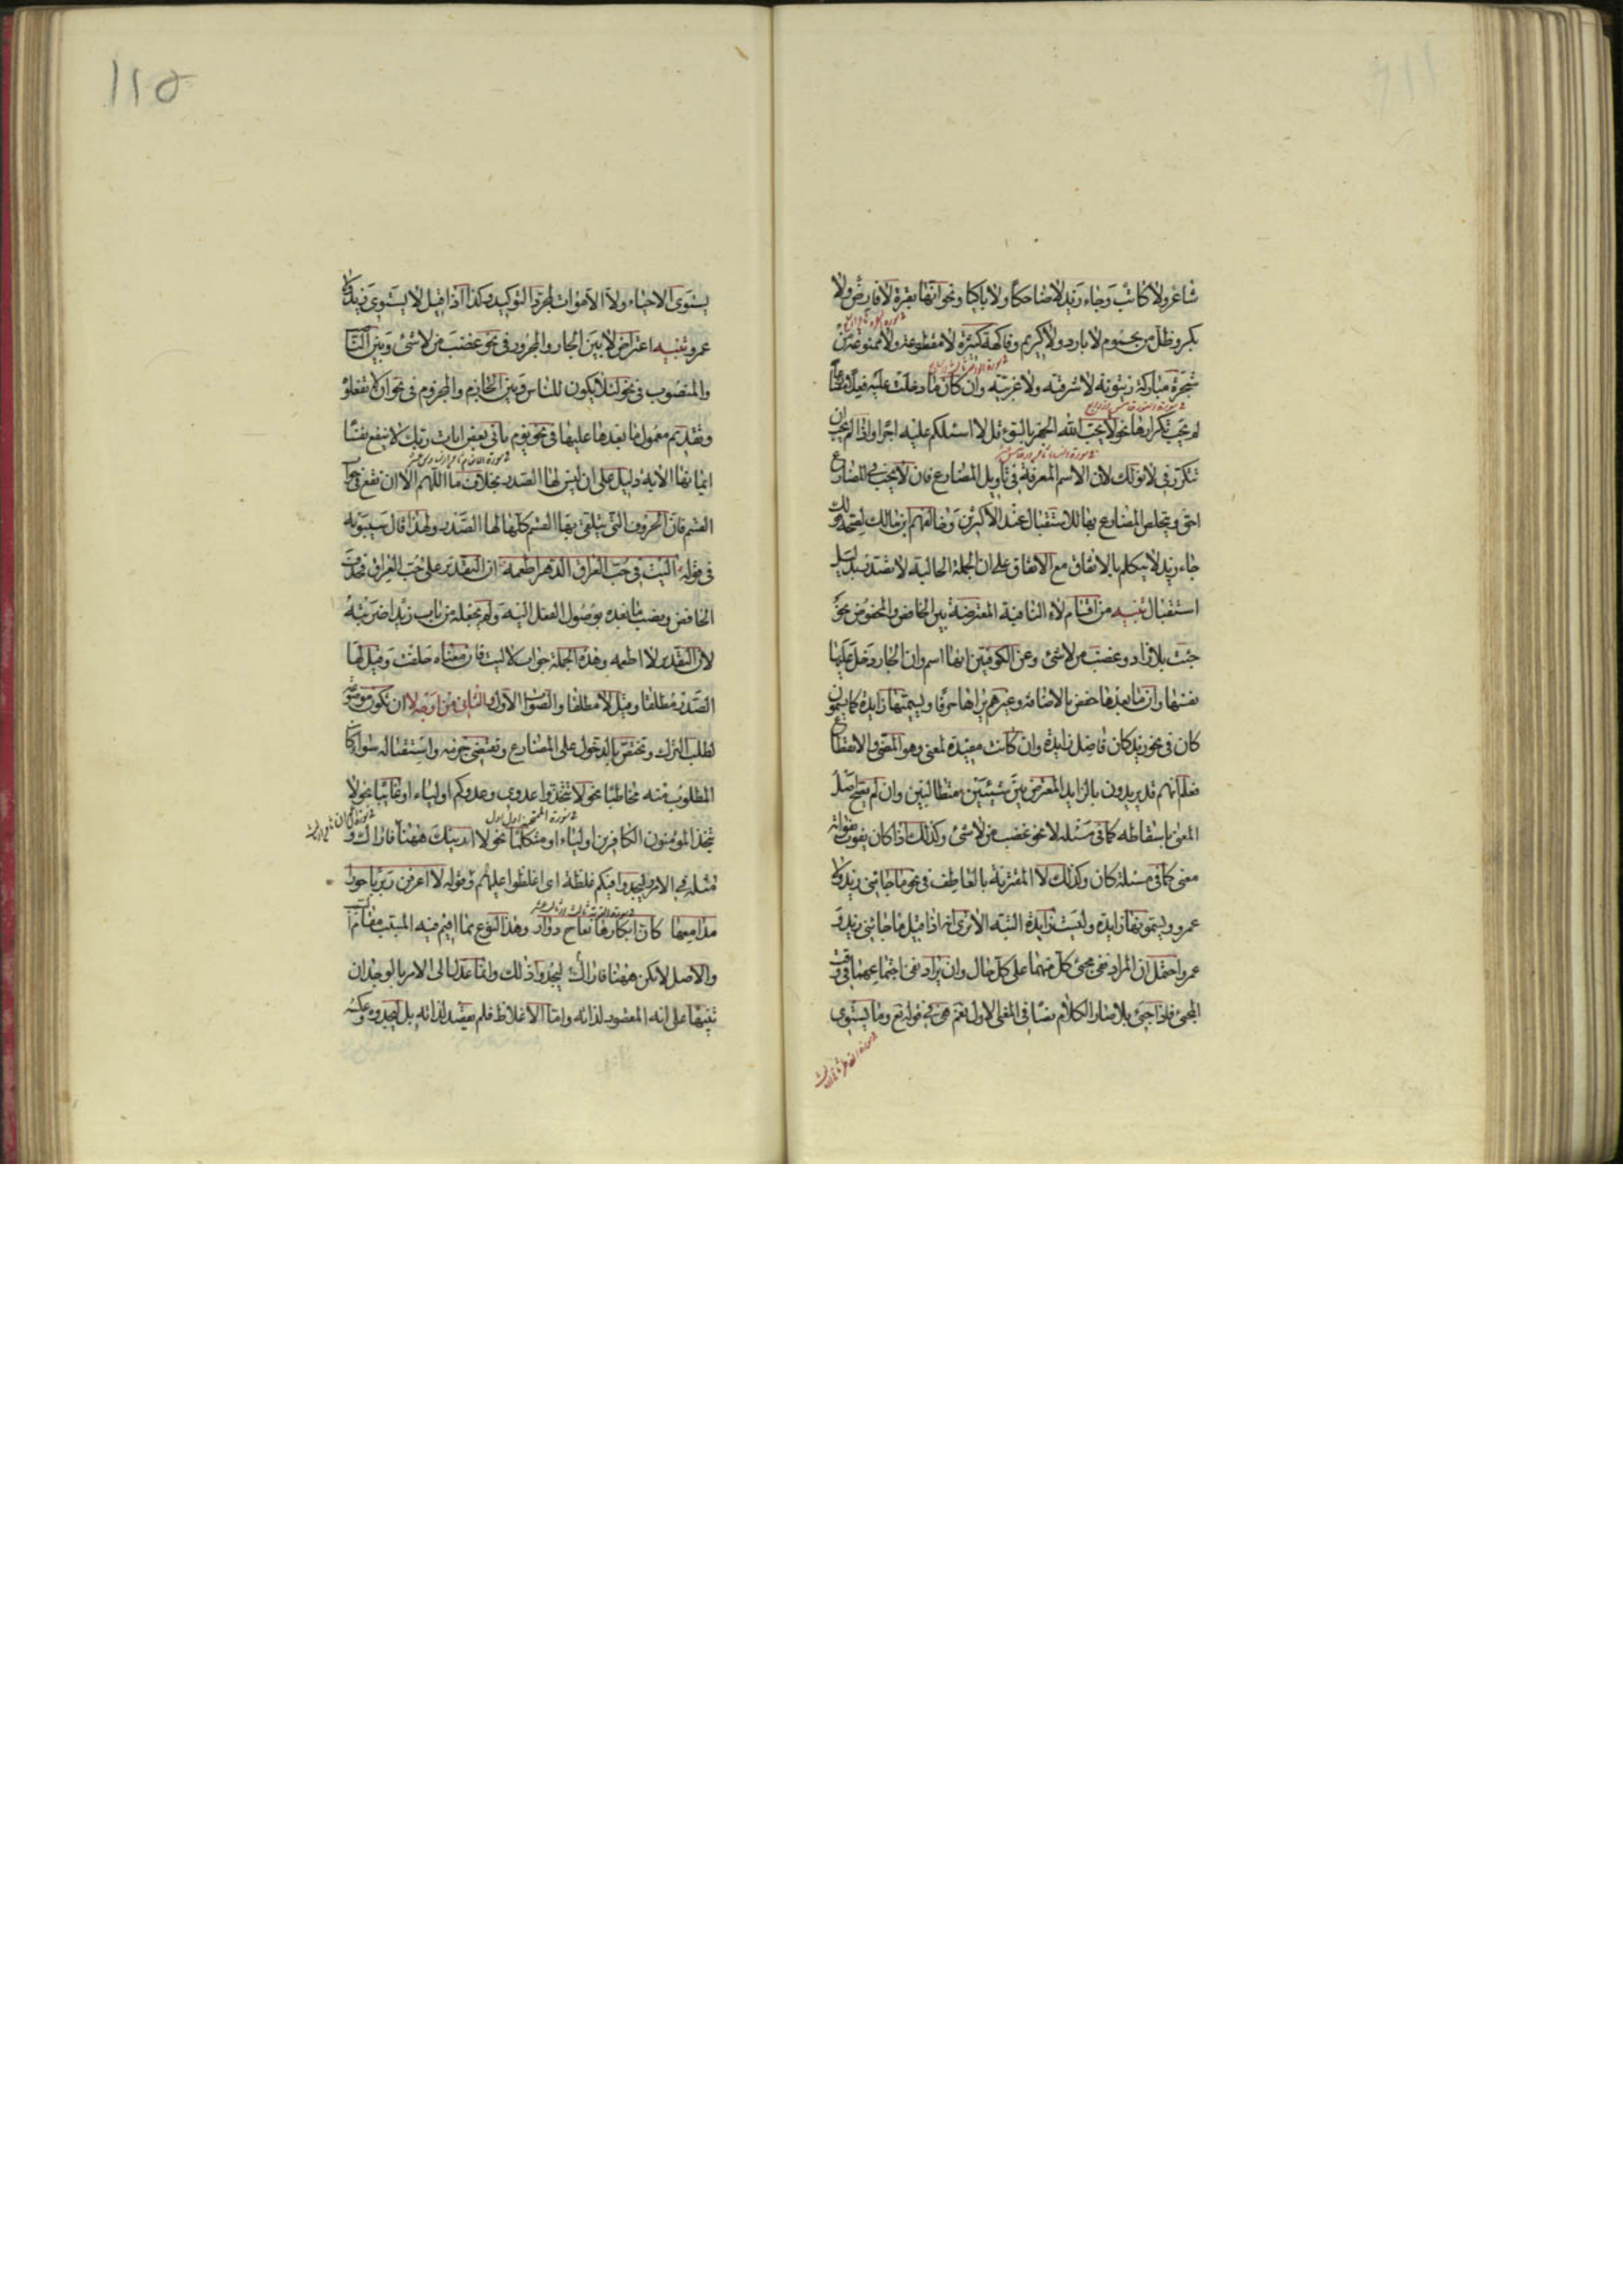 شاعر ولا كاتب وجاء زيد لا ضاحكا ولا باكيا ونحو انها بقرة لا فارض ولا
بكر وظل من يحموم لا بارد ولا كريم وفاكهة كثيرة لا مقطوعة ولا ممنوعة من
شجرة مباركة زيتونة لا شرقية ولا غربية وان كان ما دخلت عليه فعلا مضارعا
لم يجب تكرارها نحو لا يحب الله الجهر بالسوء قل لا اسئلكم عليه اجرا واذا لم يجب ان
تتكرر في لا نولك لان الاسم المعرفة في تاويل المضارع فان لا يجب في المضارع
احق ويتخلص المضارع بها للاستقبال عند الاكثرين وخالفهم ابن مالك لصحة قولك
جاء زيد لا يتكلم بالاتفاق مع الاتفاق على ان الجملة الحالية لا تصدر بدليل
استقبال تنبيه من اقسام لا النافية المعترضة بين الخافض والمخفوض نحو
جئت بلا زاد وغضبت من لا شئ وعن الكوفيين انها اسم وان الجار دخل عليها
نفسها وان ما بعدها خفض بالاضافة وغيرهم يراها حرفا ويسميها زايدة كما يسمون
كان في نحو زيد كان فاضل زايدة وان كانت مفيدة لمعنى وهو المضي والانقطاع
فعلم انهم قد يريدون بالزايد المعترض بين شيئين متطالبين وان لم يصح اصل
المعنى باسقاطه كما في مسئلة لا نحو غضبت من لا شئ وكذلك اذا كان يفوت بفواته
معنى كما في مسئلة كان وكذلك لا المقترنة بالعاطف في نحو ما جائني زيد ولا
عمرو ويسمونها زايدة وليست زايدة البتة الا ترى انه اذا قيل ما جائني زيد و
عمرو احتمل ان المراد نفي مجئ كل منهما على كل حال وان يراد نفي اجتماعهما في وقت
المجئ فاذا جئ بلا صار الكلام نصا في المعنى الاول نعم هي في قوله تع وما يستوي
١١٥
يستوى الاحياء ولا الاموات لمجرد التوكيد وكذا اذا قيل لا يستوى زيد ولا
عمرو تنبيه اعتراض لا بين الجار والمجرور في نحو غضبت من لا شئ وبين الناصب
والمنصوب في نحو لئلا يكون للناس وبين الجازم والمجزوم في نحو ان لا تفعلوه
وتقديم معمول ما بعدها عليها في نحو يوم ياتي بعض ايات ربك لا ينفع نفسا
ايمانها الاية دليل على ان ليس لها الصدر بخلاف ما اللهم الا ان تقع في جواب
القسم فان الحروف التي يتلقى بها القسم كلها لها الصدر ولهذا قال سيبويه
في قوله آليت في حب العراق الدهر اطعمه ان التقدير على حب العراق فحذف
الخافض ونصب ما بعده بوصول الفعل اليه ولم يجعله من باب زيدا ضربته
لان التقدير لا اطعمه وهذه الجملة جواب لاليت فان معناه حلفت وقيل لها
الصدر مطلقا وقيل لا مطلقا والصواب الاول والثاني من اوجه لا ان تكون موضوعة
لطلب الترك وتختص بالدخول على المضارع وتقتضي جزمه واستقباله سواء كان
المطلوب منه مخاطبا نحو لا تتخذوا عدوي وعدوكم اولياء او غايبا نحو لا
يتخذ المؤمنون الكافرين اولياء او متكلما نحو لا ارينك ههنا فاراك و
مثله في الامر وليجدوا فيكم غلظة اى اغلظوا عليهم وقوله لا اعرفن ربربا حورا
مدامعها كان ابكارها نعاج دوار وهذا النوع مما اقيم فيه المسبب مقام السبب
والاصل لا تكن ههنا فاراك ليجدوا ذلك وانما عدل الى الامر بالوجدان
تنبيها على انه المقصود لذاته واما الاغلاظ فلم يقصد لذاته بل ليجدوه وعكسه